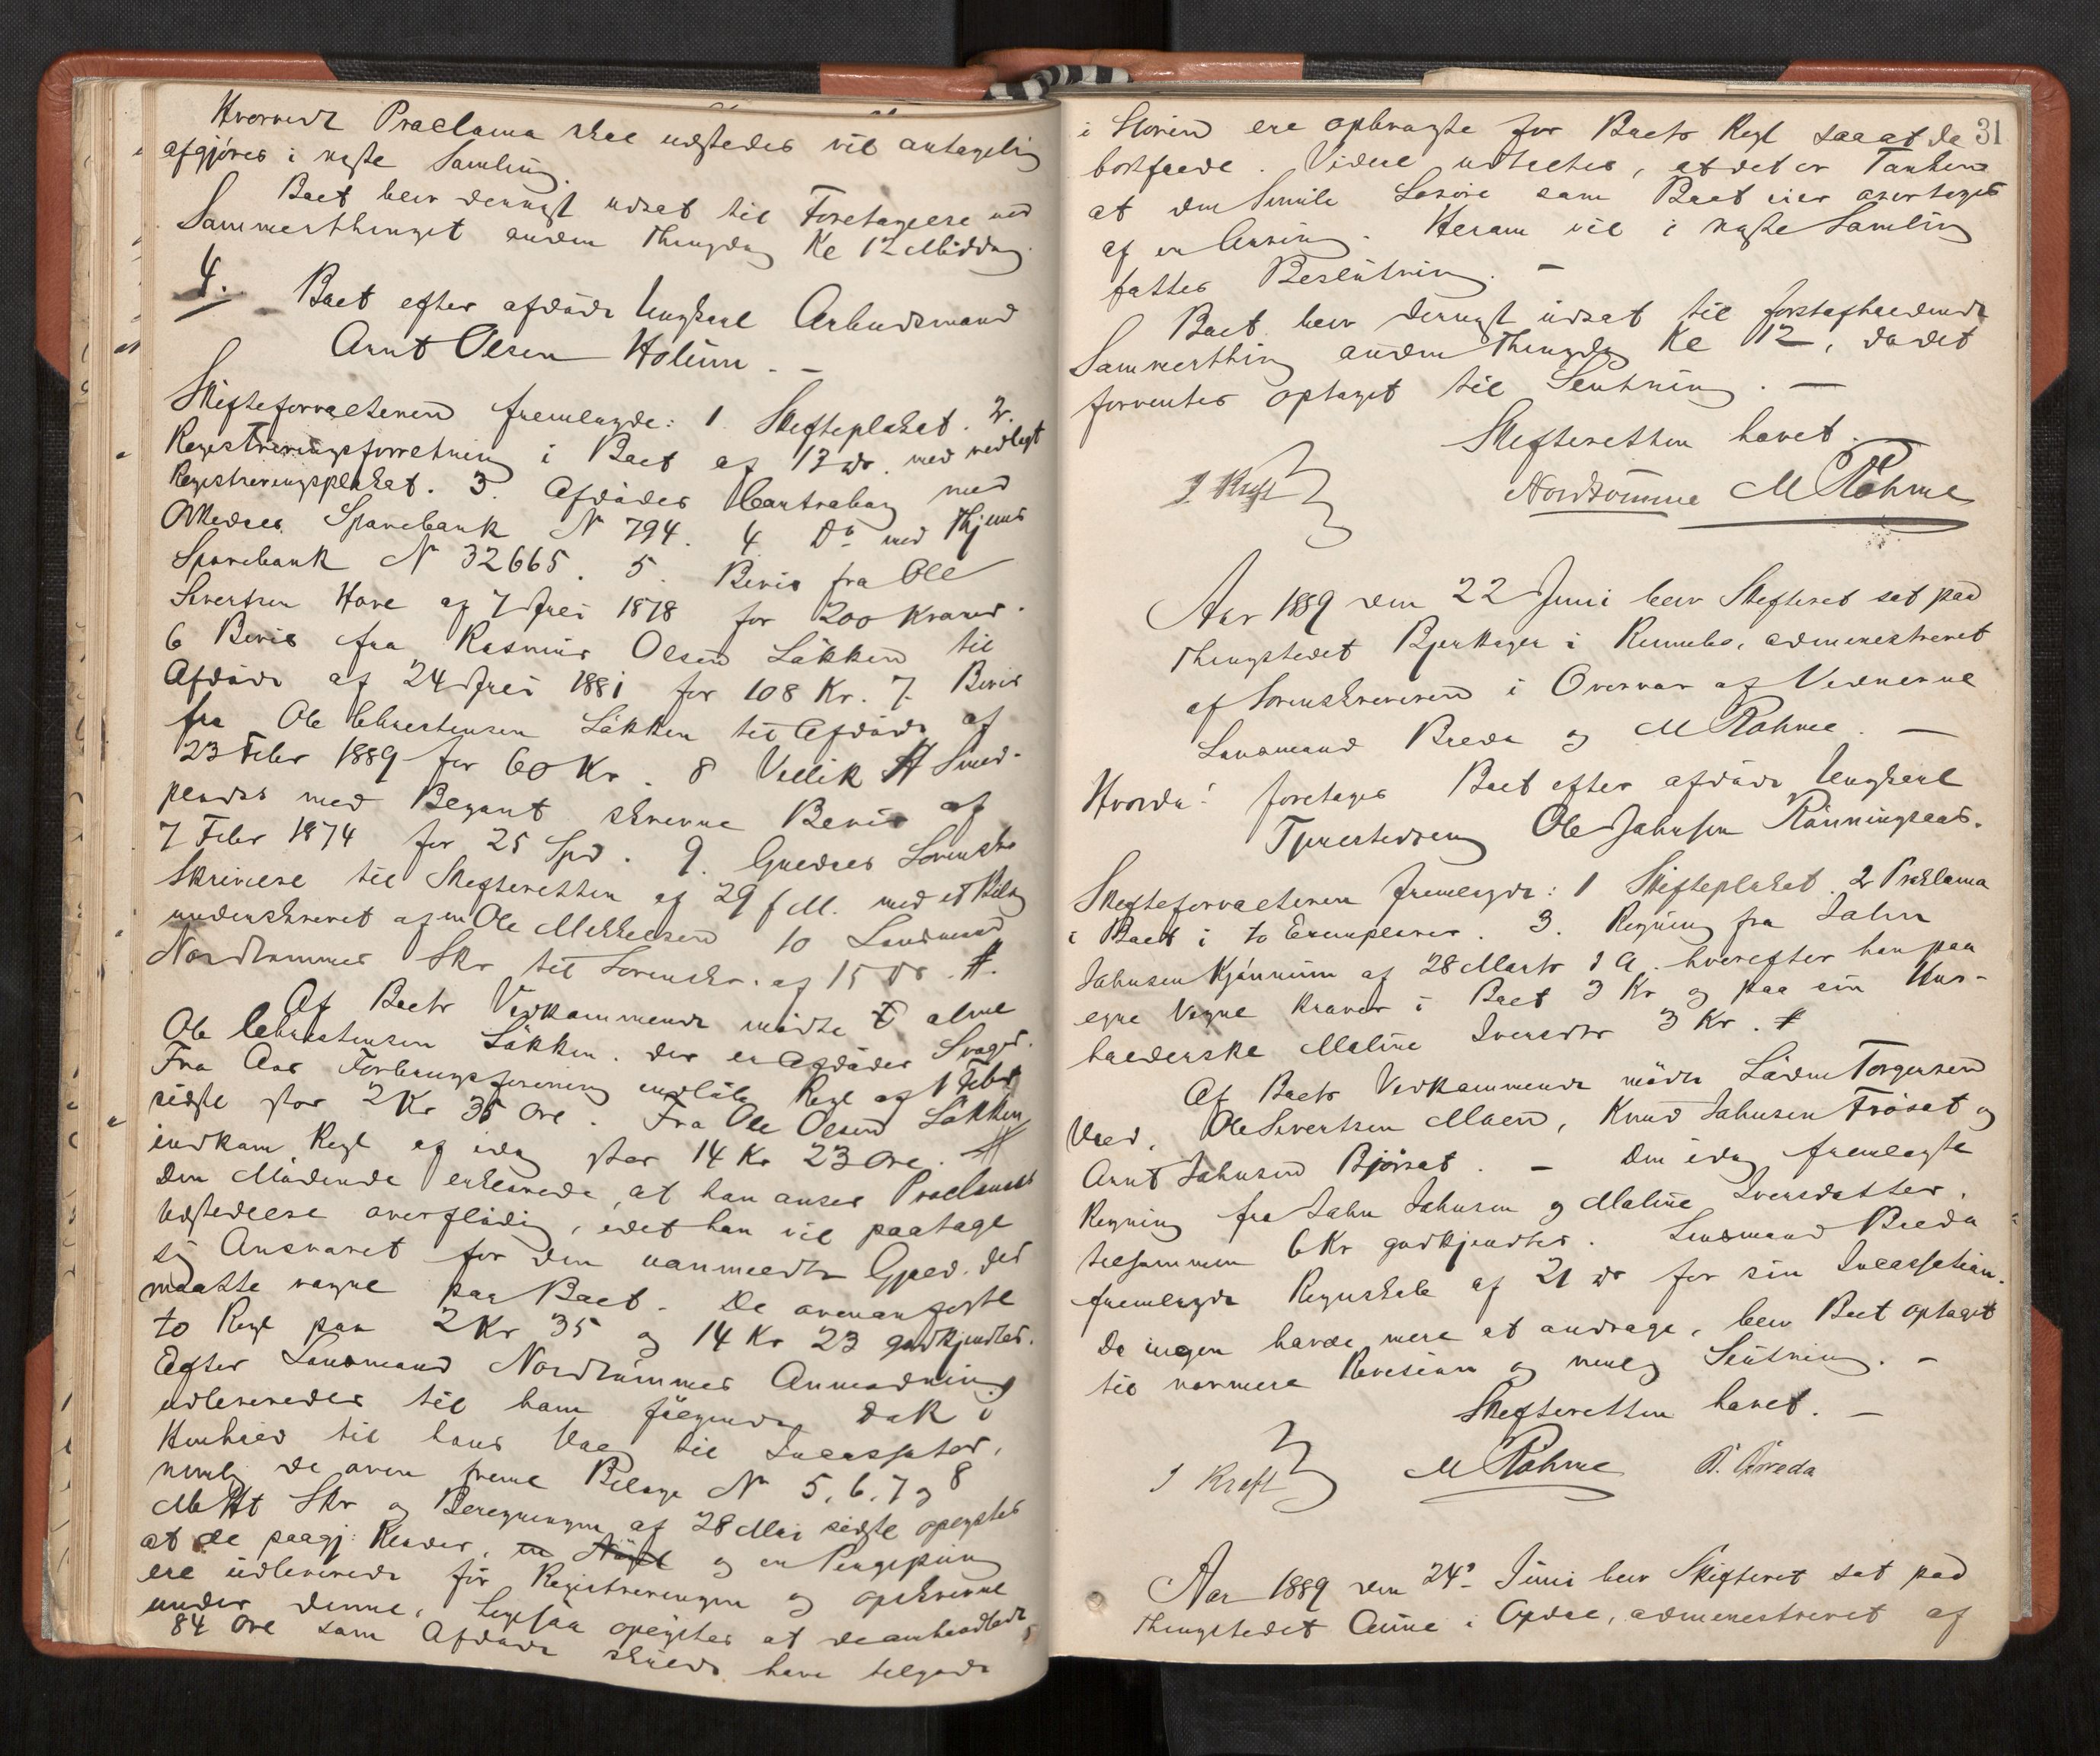 Hvorvidt Proclama skal udstedes vil antagelig
afgjöres i næste Samling.
Boet blev dernæst udsat til Foretagelse ved
Sommerthinget anden Thingdag Kl 12 Middag.
4. Boet efter afdöde Ungkarl Arbeidsmand
Arnt Olsen Holum. –
Skifteforvalteren fremlagde: 1. Skifteplakat. 2.
Registreringsforretning i Boet af 13 ds. med vedlagt
Registreringsplakat. 3. Afdödes Contrabog med
Meldals Sparebank № 794. 4 Do med Thjems
Sparebank № 32665. 5. Bevis fra Ole
Sivertsen Hove af 7 Juli 1878 for 200 Kroner.
6 Bevis fra Rasmus Olsen Lökken til
Afdöde af 24 Juli 1881 for 108 Kr. 7. Bevis
fra Ole Christensen Lökken til Afdöde af
23 Febr 1889 for 60 Kr. 8
med Begynt skrevne Bevis af
7 Febr 1874 for 25 Spd. 9. Guldals Sorensk
Skrivelse til Skifteretten af 29 f M. med et Bilag
underskrevet af en Ole Mikkelsen 10 Lensmand
Nordtömmes Skr til Sorenskr. af 15 ds. #.
Af Boets Vedkommende mödte alene
Ole Christensen Lökken. der er Afdödes Svoger.
Fra Aas Forbrugsforening indlöb Regl af 1 Febr
sidste stor 2 Kr 35 Öre. Fra Ole Olsen Lökken
indkom Regl af idag stor 14 Kr 23 Öre. #
Den Mödende erklærede, at han anser Proclamas
Udstedelse overflödig, idet han vil paatage
sig Ansvaret for den uanmeldte Gjæld. der
maatte paa Boet. De ovenanförte
to Regl paa 2 Kr 35 og 14 Kr 23 godkjendtes.
Efter Lensmand Nordtömmes Anmodning
udleveredes til ham fölgende Dok i
Henhold til hans Valg til Incassator,
nemlig de oven fremte Bilage № 5. 6. 7 og 8
Skr og Beregningen af 28 Mai sidste oplystes
at de paagj: Klæder, og en Pengepung
ere udleverede för Registreringen og opskrevne
under denne, ligesaa oplystes at de omhandlede
84 Öre som Afdöde skulde have tilgode
31
i Storen ere opbragte for Boets Regl saa at de
bortfalde. Videre udtaltes, at det er Tanken
at den Smule Lösöre som Boet eier overtages
af en Arving. Herom vil i næste Samling
fattes Beslutning. –
Boet blev dernæst udsat til forstaaende
Sommerthing anden Thingdag Kl 12, da det
forventes optaget til Slutning. –
Skifteretten hævet.
J Kraft Nordtömme M Röhme
Aar 1889 den 22 Juni blev Skifteret sat paa
Thingstedet Bjerkager i Rennebo, administreret
af Sorenskriveren i Overvær af Vidnerne
Lensmand Breda og M Röhme. –
Hvorda: foretoges Boet efter afdöde Ungkarl
Ole Johnsen Rönningsaas.
Skifteforvalteren fremlagde: 1 Skifteplakat. 2 Proklama
i Boet i to Exemplarer. 3. Regning fra John
Johnsen af 28 Marts d A. hvorefter han paa
egne Vegne kræver i Boet 3 Kr og paa sin Hus-
holderske Maline Iversdtr 3 Kr. #
Af Boets Vedkommende mödte Torgersen
Ole Sivertsen Moen, Knud Johnsen Fröset og
Arnt Johnsen Björset. – Den idag fremlagte
Regning fra John Johnsen og Maline Iversdatter.
tilsammen 6 Kr godkjendtes. Lensmand Breda
fremlagde Regnskab af 21 ds for sin Incassation.
Da ingen havde mere at andrage, blev Boet optaget
til nærmere Revision og mulig Slutning. –
Skifteretten hævet. –
J Kraft M Röhme B. Breda
Aar 1889 den 24de Juni blev Skifteret sat paa
Thingstedet Aune i Opdal, administreret af